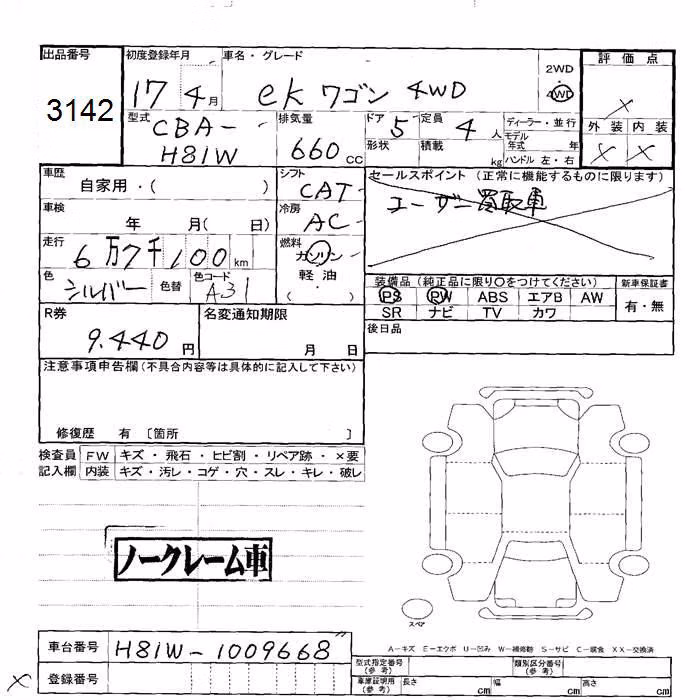 出品番号 初度登録年月 車名・グレード 評価点
3142 17 4月 ekワゴン 4WD 2WD・4WD
型式 排気量 ドア 定員 ディーラー・並行 外装 内装
CBA- 660cc 5 4人 モデル年式 年
H81W 形状 積載 kg ハンドル 左・右
車歴 シフト セールスポイント(正常に機能するものに限ります)
自家用・( ) CAT
車検 冷房 ユーザー買取車
年 月( 日) AC
走行 6万7千100km 燃料 ガソリン
軽油
( )
色 シルバー 色替 色コード A31
装備品(純正品に限り○をつけてください) 新車保証書
PS PW ABS エアB AW 有・無
SR ナビ TV カワ
R券 名変通知期限 後日品
9.440円 月 日
注意事項申告欄(不具合内容等は具体的に記入して下さい)
修復歴 有 〔箇所 〕
検査員 FW キズ・飛石・ヒビ割・リペア跡・×要
記入欄 内装 キズ・汚レ・コゲ・穴・スレ・キレ・破レ
ノークレーム車
スペア
A-キズ E-エクボ U-凹み W-補修跡 S-サビ C-腐食 XX-交換済
車台番号 H81W-1009668
型式指定番号(参考) 類別区分番号(参考)
登録番号
車庫証明用(参考) 長さ cm 幅 cm 高さ cm